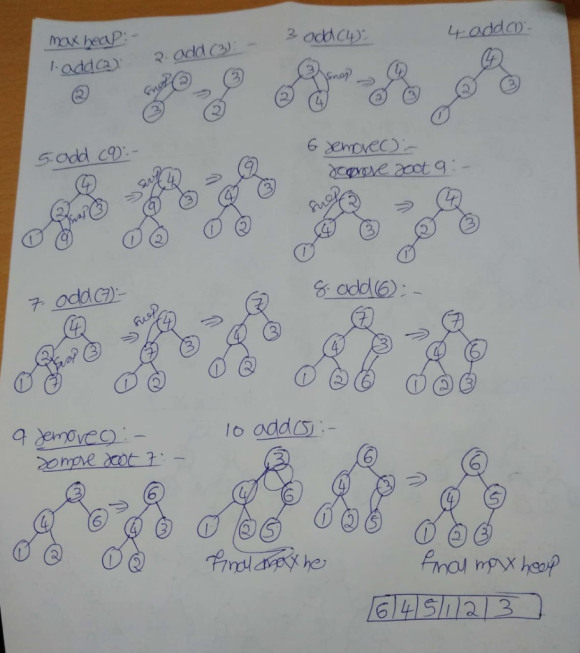 max heap:-
1. add(2):
2. add(3):-
3. add(4):-
4. add(1):-
2
swap 2
3
3
2
3 swap
2 4
4
2 3
4
2 3
1
5. add (9):-
6 remove():-
remove root 9:-
4
2 swap 3
1 9
⇒
swap 4
9 3
1 2
⇒
9
4 3
1 2
swap 2
4 3
1
⇒
4
2 3
1
7. add(7):-
8. add(6):-
4
2 swap 3
1 7
⇒
swap 4
7 3
1 2
⇒
7
4 3
1 2
7
4 3
1 2 6
⇒
7
4 6
1 2 3
9 remove():-
remove root 7:-
10 add(5):-
3
4 6
1 2
⇒
6
4 3
1 2
3
4 6
1 2 5
6
4 3
1 2 5
⇒
6
4 5
1 2 3
final max he
final max heap
6 4 5 1 2 3